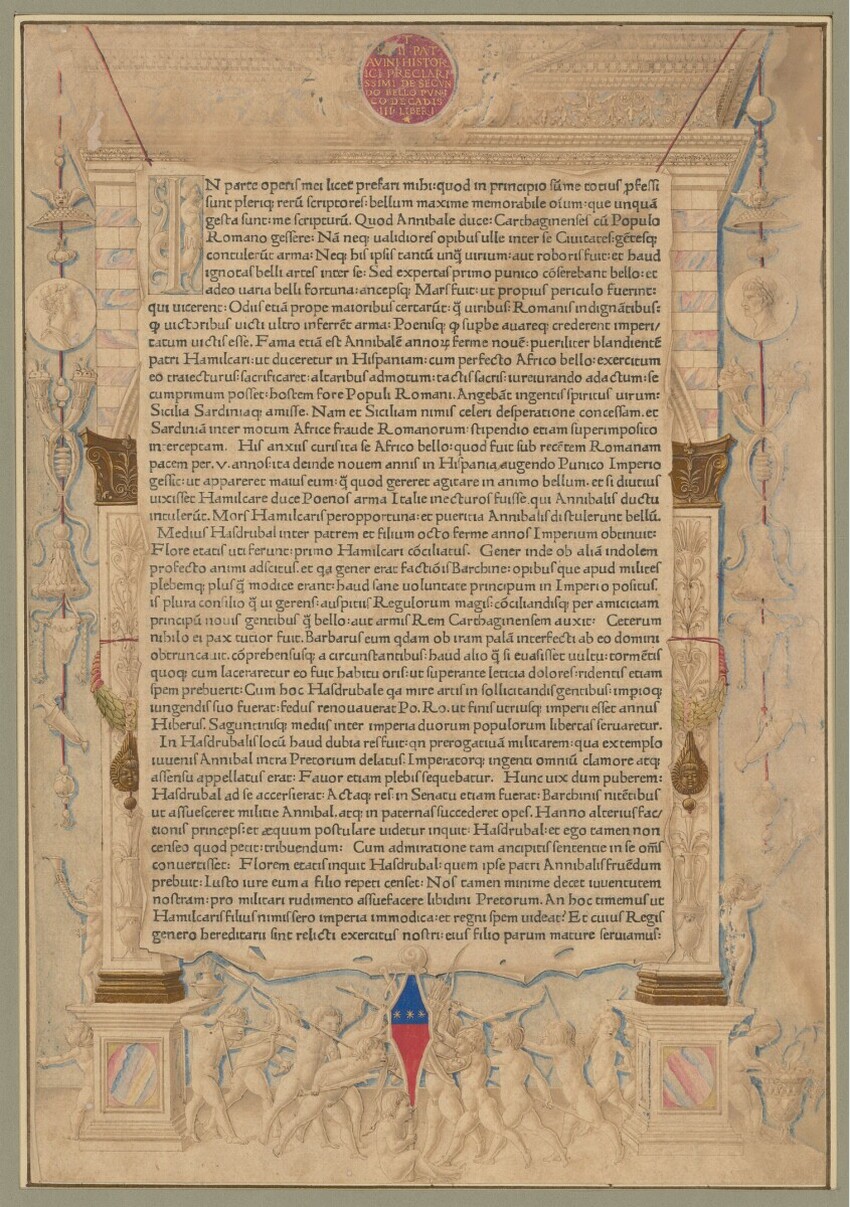 T
LIVII PAT
AVINI HISTOR
ICI PRECLARI
SSIMI DE SECVN
DO BELLO PVNI
CO DECADIS
III LIBER I
IN parte operis mei licet prefari mihi: quod in principio sũme totius ꝓfessi
sunt pleriqꝫ rerũ scriptores: bellum maxime memorabile oĩum: que unquã
gesta sunt: me scripturũ. Quod Annibale duce: Carthaginenses cũ Populo
Romano gessere: Nã neqꝫ ualidiores opibus ulle inter se Ciuitates: gẽtesqꝫ
contulerũt arma: Neqꝫ his ipsis tantũ unq̃ uirium: aut roboris fuit: et haud
ignotas belli artes inter se: Sed expertas primo punico cõserebant bello: et
adeo uaria belli fortuna: ancepsqꝫ Mars fuit: ut propius periculo fuerint:
qui uicerent: Odiis etiã prope maioribus certarũt: q̃ uiribus: Romanis indignãtibus:
ꝙ uictoribus uicti ultro inferrẽt arma: Poenisqꝫ ꝙ supbe auareqꝫ crederent imperi/
tatum uictis esse. Fama etiã est Annibalẽ annoꝝ ferme nouẽ: pueriliter blandientẽ
patri Hamilcari: ut duceretur in Hispaniam: cum perfecto Africo bello: exercitum
eo traiecturus: sacrificaret: altaribus admotum: tactis sacris: iureiurando adactum: se
cumprimum posset: hostem fore Populi Romani. Angebãt ingentis spiritus uirum:
Sicilia Sardiniaqꝫ amisse. Nam et Siciliam nimis celeri desperatione concessam. et
Sardiniã inter motum Africe fraude Romanorum: stipendio etiam superimposito
interceptam. His anxius curis ita se Africo bello: quod fuit sub recẽtem Romanam
pacem per. v. annos: ita deinde nouem annis in Hispania augendo Punico Imperio
gessit: ut appareret maius eum: q̃ quod gereret agitare in animo bellum: et si diutius
uixisset Hamilcare duce Poenos arma Italie inecturos fuisse. qui Annibalis ductu
intulerũt. Mors Hamilcaris peropportuna: et pueritia Annibalis distulerunt bellũ.
Medius Hasdrubal inter patrem et filium octo ferme annos Imperium obtinuit:
Flore etatis uti ferunt: primo Hamilcari cõciliatus. Gener inde ob aliã indolem
profecto animi adscitus. et qa gener erat factiõis Barchine: opibus que apud milites
plebemqꝫ plusq̃ modice erant: haud sane uoluntate principum in Imperio positus.
is plura consilio q̃ ui gerens: auspitiis Regulorum magis: cõciliandisqꝫ per amiciciam
principũ nouis gentibus q̃ bello: aut armis Rem Carthaginensem auxit: Ceterum
nihilo ei pax tutior fuit. Barbarus eum qdam ob iram palã interfecti ab eo domini
obtruncauit. cõprehensusqꝫ a circunstantibus: haud alio q̃ si euasisset uultu: tormẽtis
quoqꝫ cum laceraretur eo fuit habitu oris: ut superante leticia dolores: ridentis etiam
spem prebuerit: Cum hoc Hasdrubale qa mire artis in sollicitandis gentibus: impioqꝫ
iungendis suo fuerat: fedus renouauerat Po. Ro. ut finis utriusqꝫ imperii esset annus
Hiberus. Saguntinisqꝫ mediis inter imperia duorum populorum libertas seruaretur.
In Hasdrubalis locũ haud dubia res fuit: qn prerogatiuã militarem: qua extemplo
iuuenis Annibal intra Pretorium delatus. Imperatorqꝫ ingenti omniũ clamore atqꝫ
assensu appellatus erat: Fauor etiam plebis sequebatur. Hunc uix dum puberem:
Hasdrubal ad se accersierat: Actaqꝫ res in Senatu etiam fuerat: Barchinis nitẽtibus
ut assuesceret militie Annibal. atqꝫ in paternas succederet opes. Hanno alterius fac/
tionis princeps: et æquum postulare uidetur inquit: Hasdrubal: et ego tamen non
censeo quod petit: tribuendum: Cum admiratione tam ancipitis sententie in se om̃s
conuertisset: Florem etatis inquit Hasdrubal: quem ipse patri Annibalis fruẽdum
prebuit: Iusto iure eum a filio repeti censet: Nos tamen minime decet iuuentutem
nostram: pro militari rudimento assuefacere libidini Pretorum. An hoc timemus ut
Hamilcaris filius nimis sero imperia immodica: et regni spem uideat? Et cuius Regis
genero hereditarii sint relicti exercitus nostri: eius filio parum mature seruiamus: